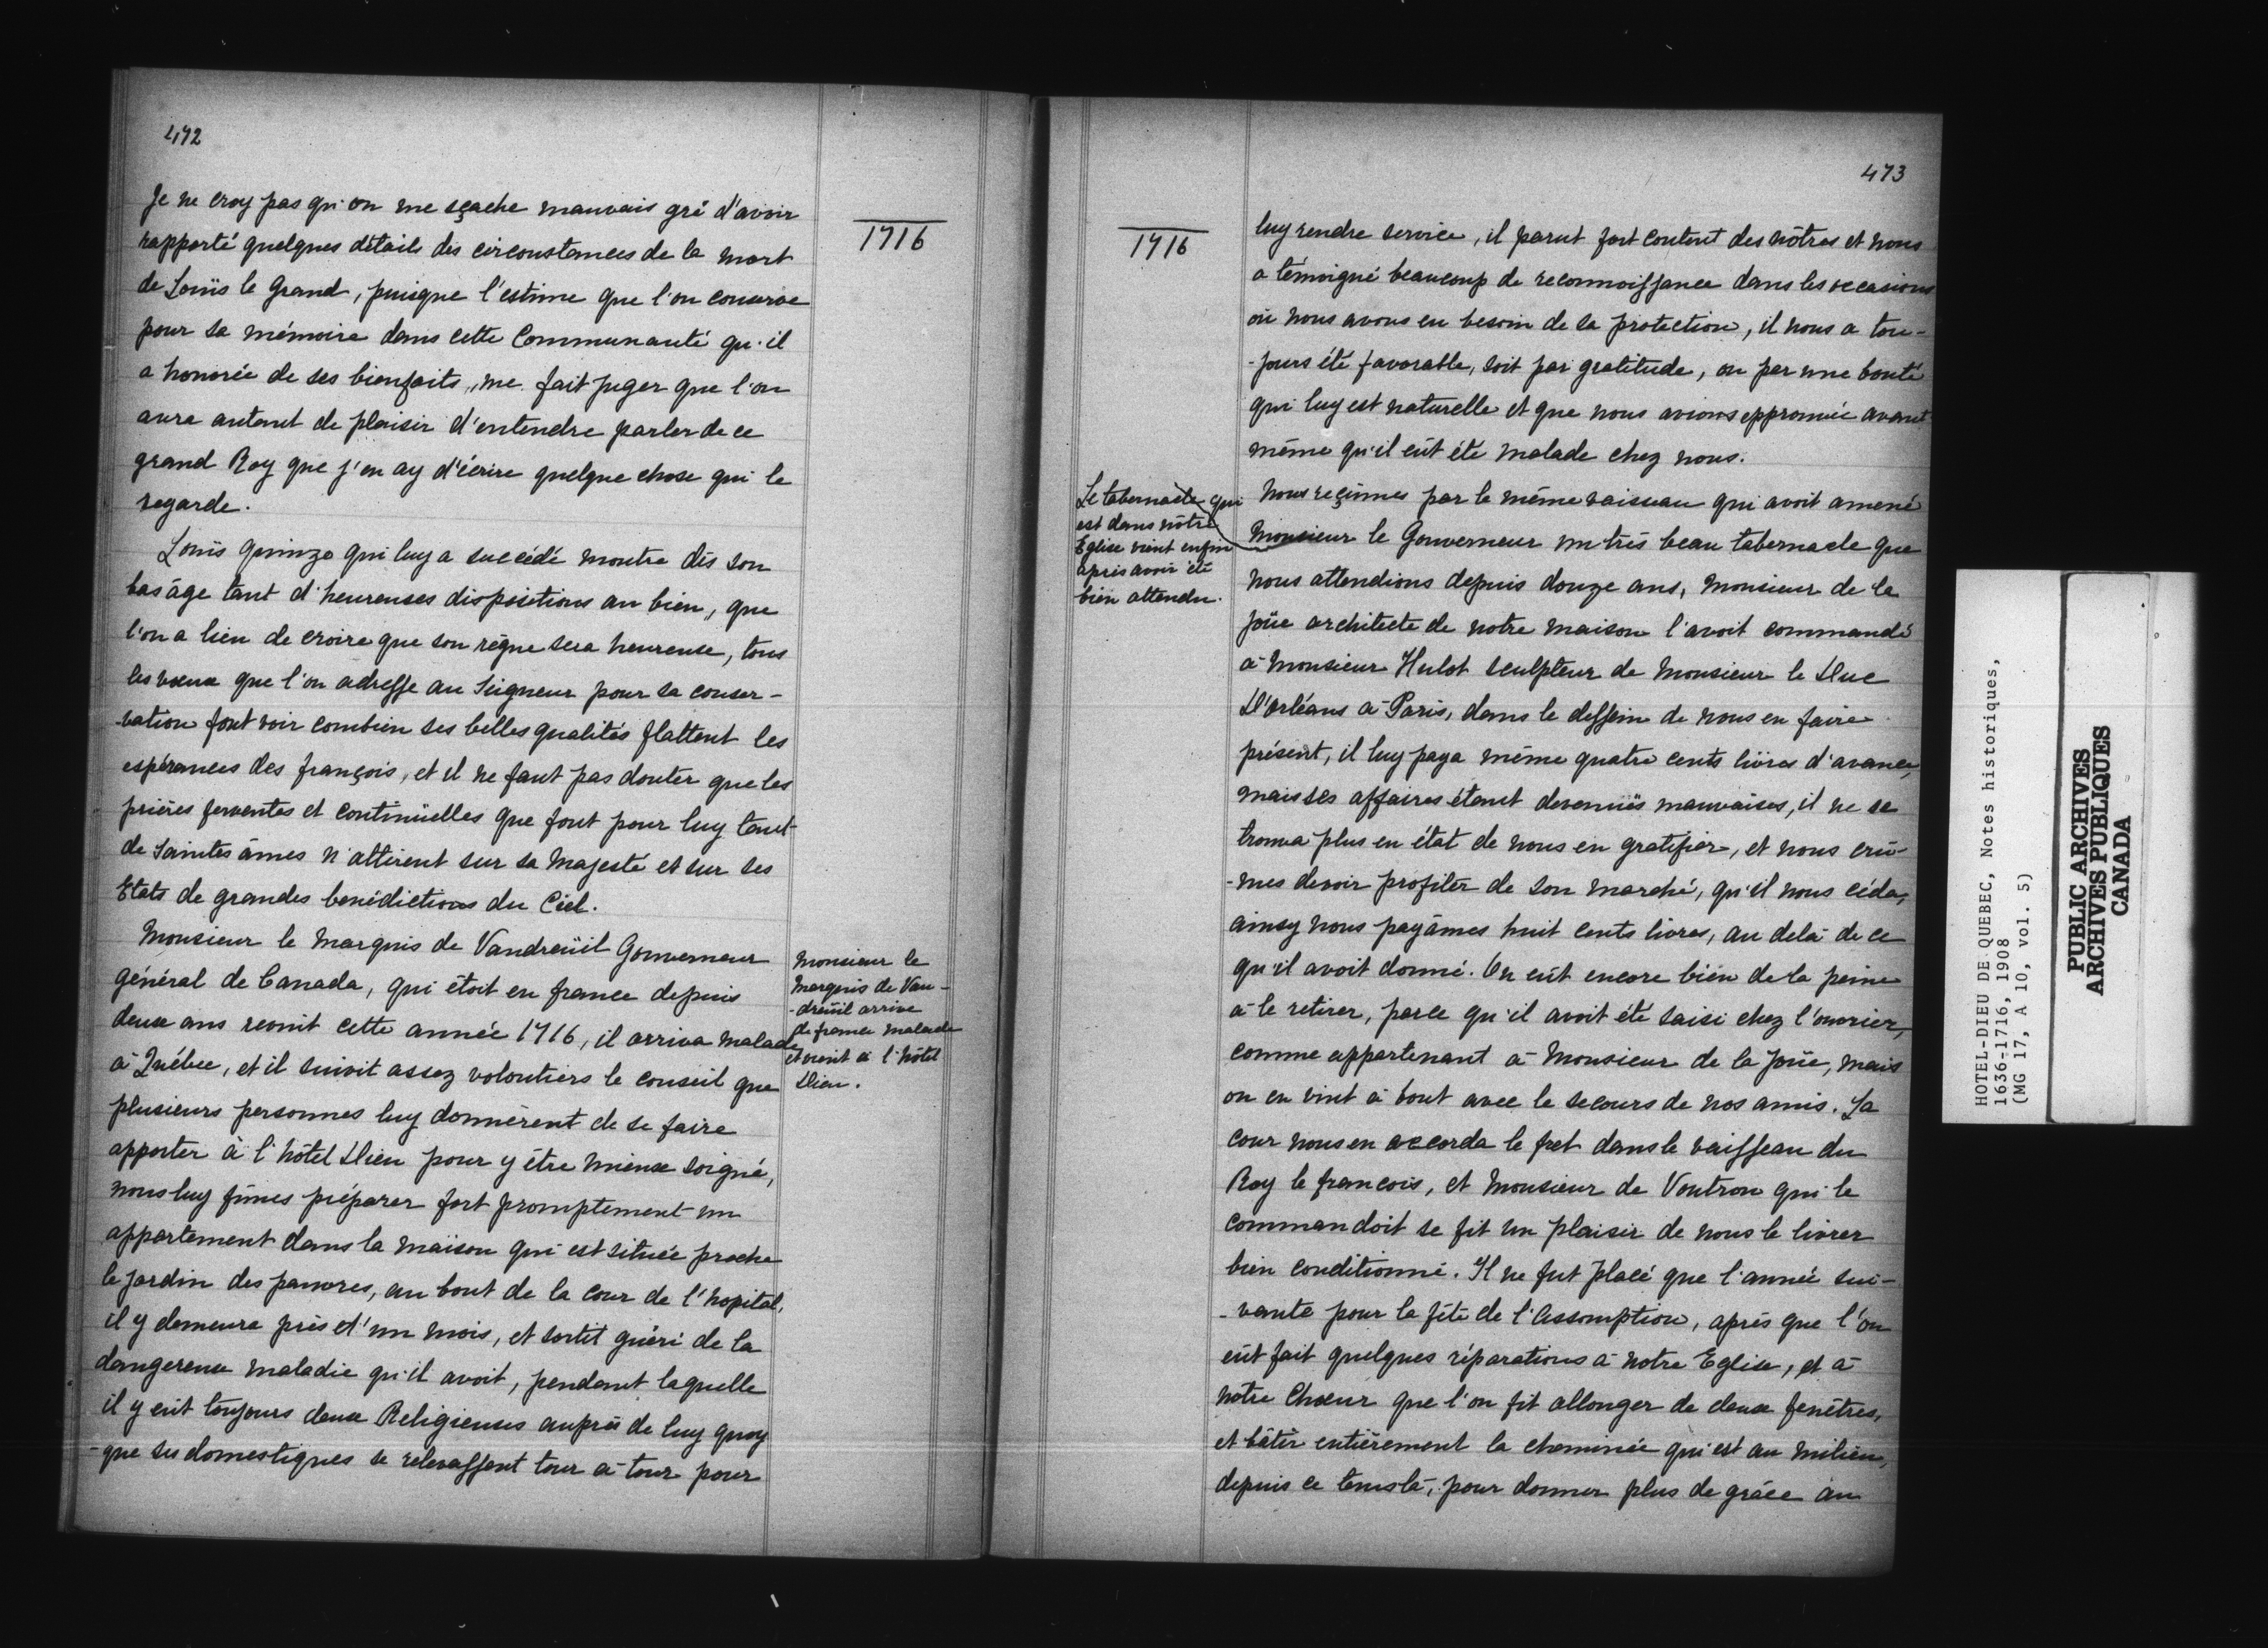 472
Je ne croy pas qu'on me sçache mauvais gré d'avoir
rapporté quelques détails des circonstances de la mort
de Loüis le Grand, puisque l'estime que l'on conserve
pour sa mémoire dans cette Communauté qu'il
a honorée de ses bienfaits, me fait juger que l'on
aura autant de plaisir d'entendre parler de ce
grand Roy que j'en ay d'écrire quelque chose qui le
regarde.
Loüis quinze qui luy a succédé montre dès son
bas âge tant d'heureuses dispositions au bien, que
l'on a lieu de croire que son règne sera heureuse, tous
les vœux que l'on adresse au Seigneur pour sa conser-
-vation font voir combien ses belles qualités flattent les
espérances des françois, et il ne faut pas douter que les
prières ferventes et continüelles que font pour luy tant
de Saintes âmes n'attirent sur sa Majesté et sur ses
Etats de grandes bénédictions du Ciel.
Monsieur le Marquis de Vaudreüil Gouverneur
général de Canada, qui étoit en france depuis
deux ans revint cette année 1716, il arriva malade
à Québec, et il suivit assez volontiers le conseil que
plusieurs personnes luy donnèrent de se faire
apporter à l'hôtel Dieu pour y être mieux soigné,
nous luy fîmes préparer fort promptement un
appartement dans la maison qui est située proche
le jardin des pauvres, au bout de la cour de l'hopital,
il y demeura près d'un mois, et sortit guéri de la
dangereuse maladie qu'il avoit, pendant laquelle
il y eût toujours deux Religieuses auprès de luy quoy
-que ses domestiques se relevassent tour à tour pour
1716
Monsieur le
Marquis de Vau-
-dreüil arrive
de france malade
et vient à l'hôtel
Dieu.
473
1716
luy rendre service, il parut fort content des nôtres et nous
a témoigné beaucoup de reconnoissance dans les occasions
où nous avons eu besoin de sa protection, il nous a tou-
-jours été favorable, soit par gratitude, ou par une bonté
qui luy est naturelle et que nous avions epprouvée avant
même qu'il eût été malade chez nous.
Le tabernacle qui
est dans nôtre
Eglise vient enfin
après avoir été
bien attendu.
Nous reçûmes par le même vaisseau qui avoit amené
Monsieur le Gouverneur un très beau tabernacle que
nous attendions depuis douze ans, Monsieur de la
Joüe architecte de notre maison l'avoit commandé
à Monsieur Hulot sculpteur de Monsieur le Duc
D'Orléans à Paris, dans le dessein de nous en faire
présent, il luy paya même quatre cents livres d'avance,
mais ses affaires étant devenuës mauvaises, il ne se
trouva plus en état de nous en gratifier, et nous crû-
-mes devoir profiter de son marché, qu'il nous céda,
ainsy nous payâmes huit cents livres, au delà de ce
qu'il avoit donné. On eût encore bien de la peine
à le retirer, parce qu'il avoit été saisi chez l'ouvrier,
comme appartenant à Monsieur de la Joüe, mais
on en vint à bout avec le secours de nos amis. La
cour nous en accorda le fret dans le vaisseau du
Roy le francois, et Monsieur de Voutron qui le
commandoit se fit un plaisir de nous le livrer
bien conditionné. Il ne fut placé que l'année sui-
-vante pour la fête de l'Assomption, après que l'on
eût fait quelques réparations à notre Eglise, et à
notre Chœur que l'on fit allonger de deux fenêtres,
et bâtir entièrement la cheminée qui est au milieu,
depuis ce temslà, pour donner plus de grâce au
HOTEL-DIEU DE QUEBEC, Notes historiques,
1636-1716, 1908
(MG 17, A 10, vol. 5)
PUBLIC ARCHIVES
ARCHIVES PUBLIQUES
CANADA